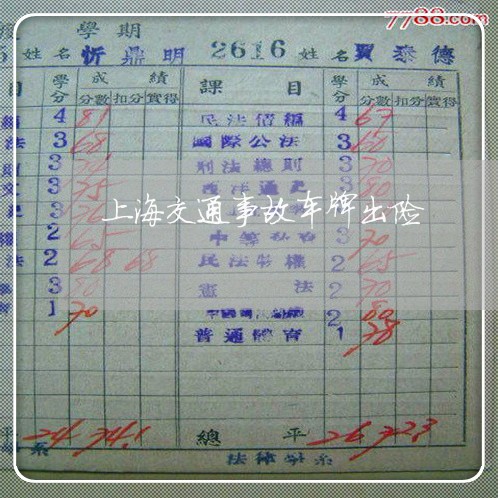 7788.com
學期
5 姓名 忻鼎明 2616 姓名 賈泰德
目 學分 成績 課目 學分 成績
分數 扣分 實得 分數 扣分 實得
4 81 民法債編 4 67
法 3 68 國際公法 3 60
3 刑法總則 3 70
3 75 通史 3 80
上海交通事故车牌出险
3 3
權 2 65 3 70
法 2 68 68 民法物權 2 65
3 80 憲法 2 70
1 70 2 80
普通體育 1 78
平 24 74.1 總平 26 72.3
系 法律學系